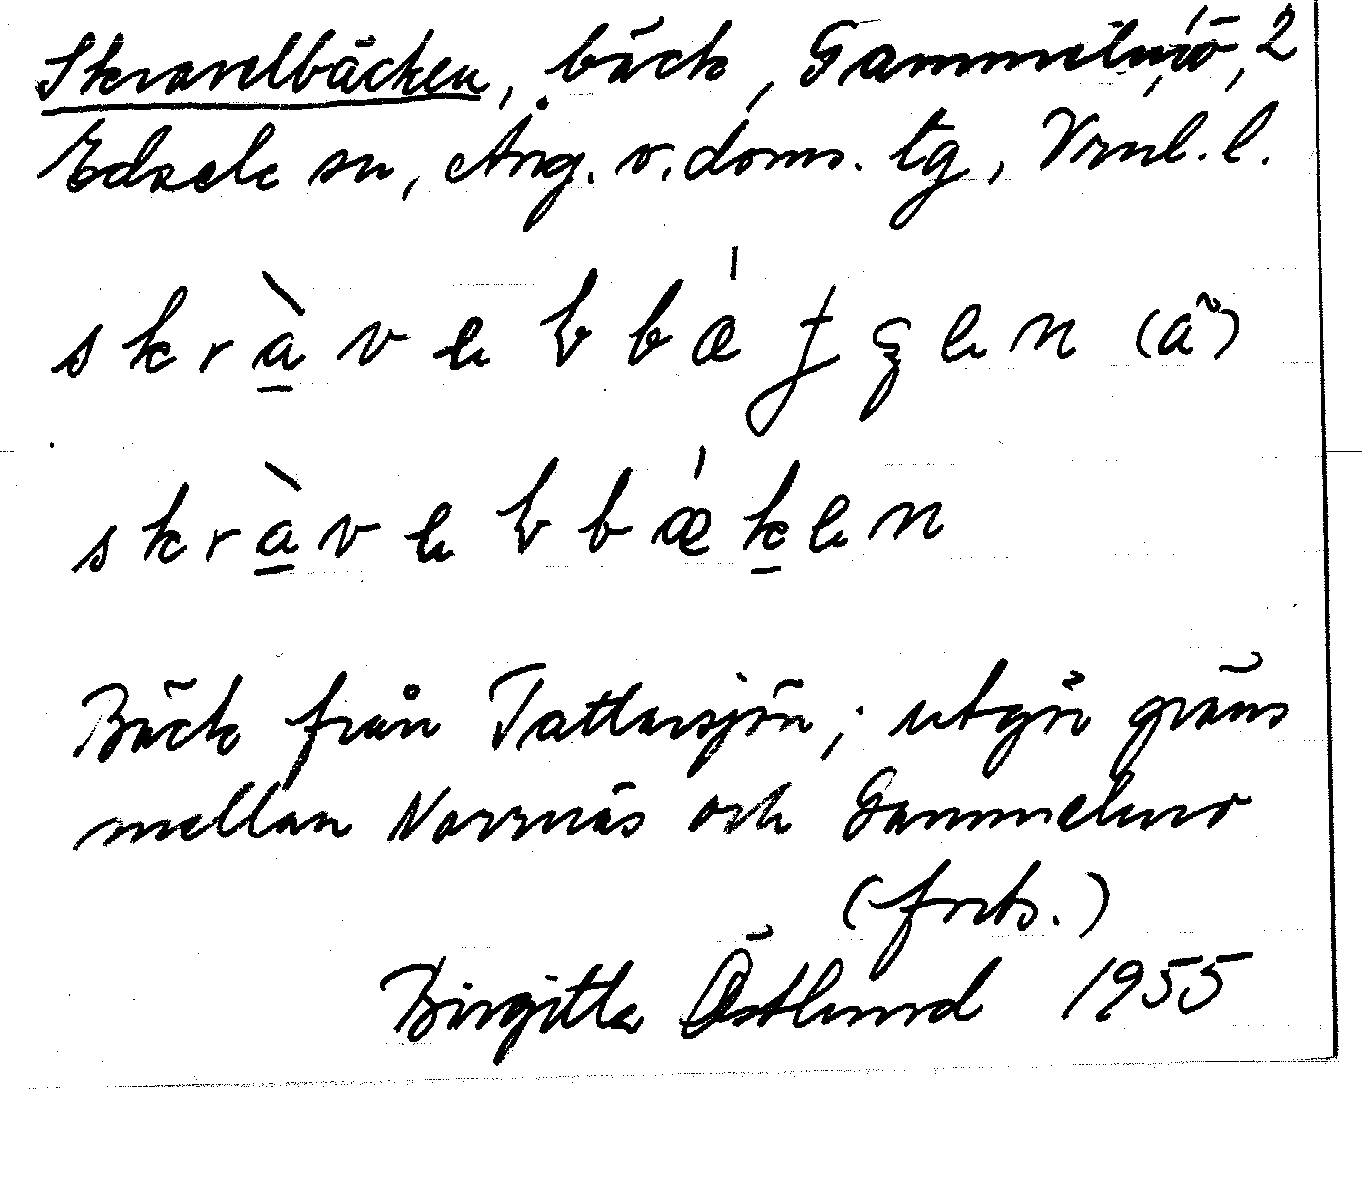 Skravelbäcken, bäck, Gammelmo, 2
Edsele sn, Ång. v. doms. tg, Vrnl. l.
skràvel bbǽ len (ã)
skràvel bbǽken
Bäck från Tattarsjön; utgör gräns
mellan Norrnäs och Gammelmo
(forts.)
Birgitta Östlund 1955